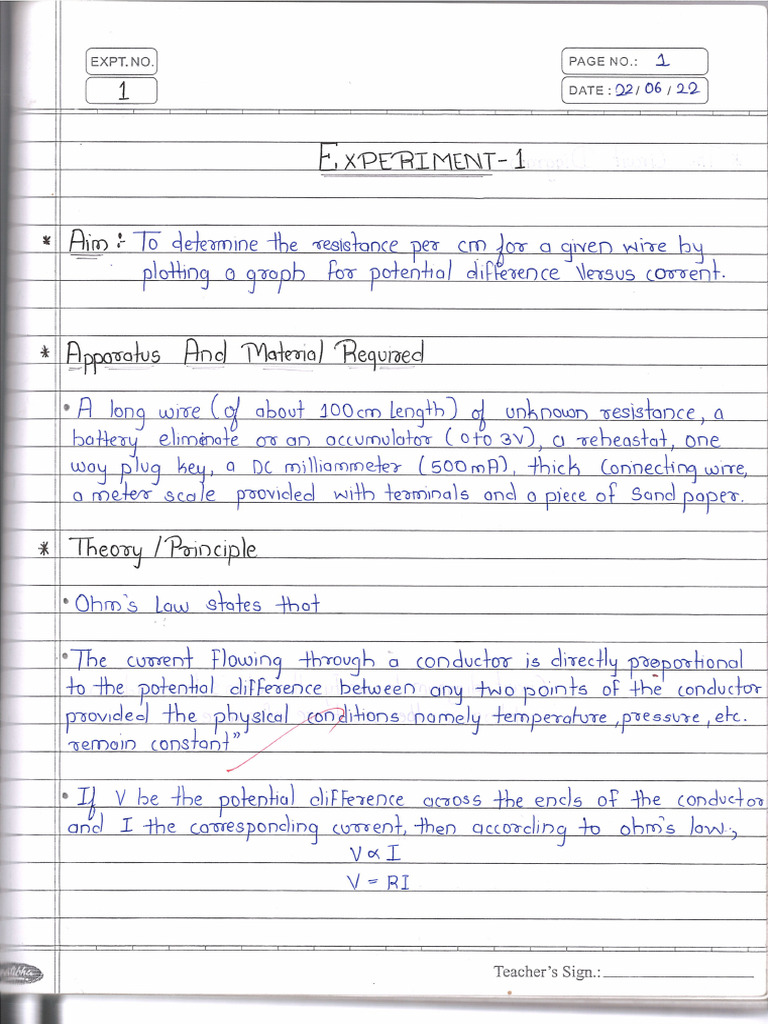 EXPT. NO.
1
PAGE NO.: 1
DATE : 02/06/22
EXPERIMENT-1
* Aim :- To determine the resistance per cm for a given wire by
plotting a graph for potential difference Versus current.
* Apparatus And Material Required
• A long wire (of about 100cm Length) of unknown resistance, a
battery eliminate or an accumulator (0 to 3V), a reheastat, one
way plug key, a DC milliammeter (500mA), thick Connecting wire,
a meter scale provided with terminals and a piece of Sand paper.
* Theory / Principle
• Ohm's Law states that
"The current flowing through a conductor is directly proportional
to the potential difference between any two points of the conductor
provided the physical conditions namely temperature, pressure, etc.
remain constant"
• If V be the potential difference across the ends of the conductor
and I the corresponding current, then according to ohm's law,
V ∝ I
V = RI
Teacher's Sign.: